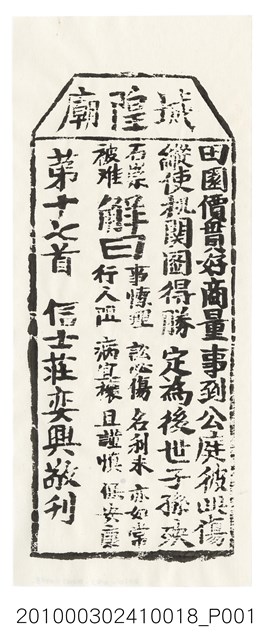 城隍廟
田園價貫好商量 事到公庭彼此傷
縱使機関圖得勝 定為後世子孫殃
石崇
被难
解曰
事悖理 訟必傷 名利未 亦如常
行人阻 病宜禳 且謹慎 保安康
第十七首 信士莊奕興敬刊
201000302410018_P001